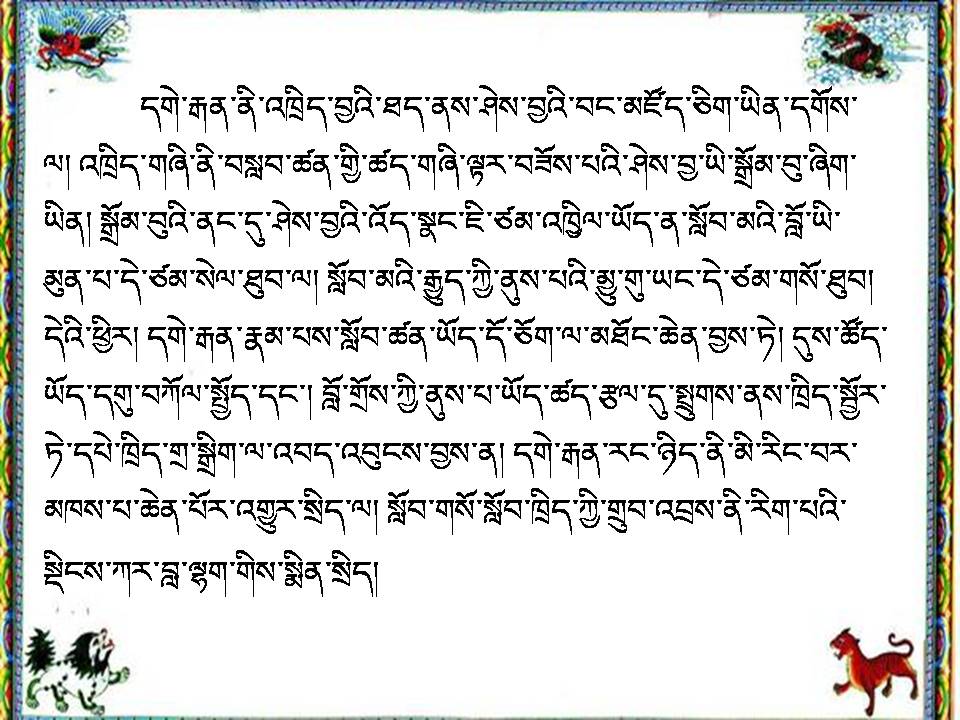 དགེ་རྒན་ནི་འཁྲིད་བྱའི་ཐད་ནས་ཤེས་བྱའི་བང་མཛོད་ཅིག་ཡིན་དགོས་
ལ། འཁྲིད་གཞི་ནི་བསླབ་ཚན་གྱི་ཚད་གཞི་ལྟར་བཟོས་པའི་ཤེས་བྱ་ཡི་སྒྲོམ་བུ་ཞིག་
ཡིན། སྒྲོམ་བུའི་ནང་དུ་ཤེས་བྱའི་འོད་སྣང་ཇི་ཙམ་འཁྱིལ་ཡོད་ན་སློབ་མའི་བློ་ཡི་
མུན་པ་དེ་ཙམ་སེལ་ཐུབ་ལ། སློབ་མའི་རྒྱུད་ཀྱི་ནུས་པའི་མྱུ་གུ་ཡང་དེ་ཙམ་གསོ་ཐུབ།
དེའི་ཕྱིར། དགེ་རྒན་རྣམ་པས་སློབ་ཚན་ཡོད་དོ་ཅོག་ལ་མཐོང་ཆེན་བྱས་ཏེ། དུས་ཚོད་
ཡོད་དགུ་བཀོལ་སྤྱོད་དང་། བློ་གྲོས་ཀྱི་ནུས་པ་ཡོད་ཚད་རྩལ་དུ་སྤྲུགས་ནས་ཁྲིད་སྦྱོར་
ཏེ་དཔེ་ཁྲིད་གྲ་སྒྲིག་ལ་འབད་འབུངས་བྱས་ན། དགེ་རྒན་རང་ཉིད་ནི་མི་རིང་བར་
མཁས་པ་ཆེན་པོར་འགྱུར་སྲིད་ལ། སློབ་གསོ་སློབ་ཁྲིད་ཀྱི་གྲུབ་འབྲས་ནི་རིག་པའི་
སྡིངས་ཀར་བླ་ལྷག་གིས་སྨིན་སྲིད།